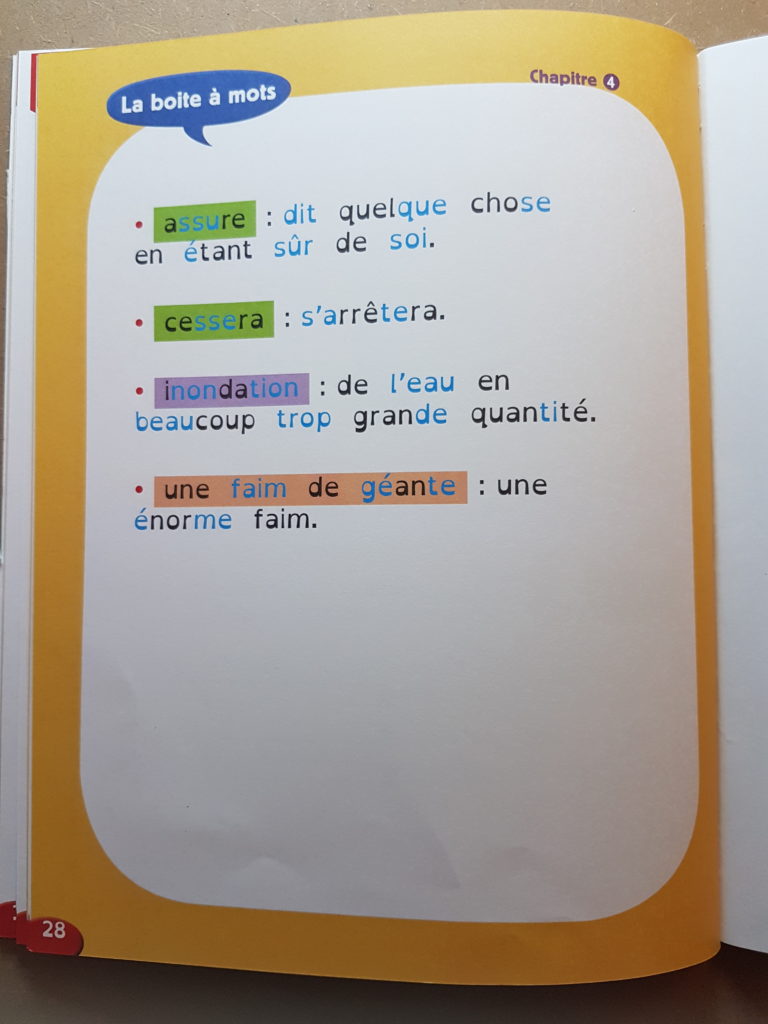 La boite à mots
Chapitre 4
• assure : dit quelque chose
en étant sûr de soi.
• cessera : s'arrêtera.
• inondation : de l'eau en
beaucoup trop grande quantité.
• une faim de géante : une
énorme faim.
28